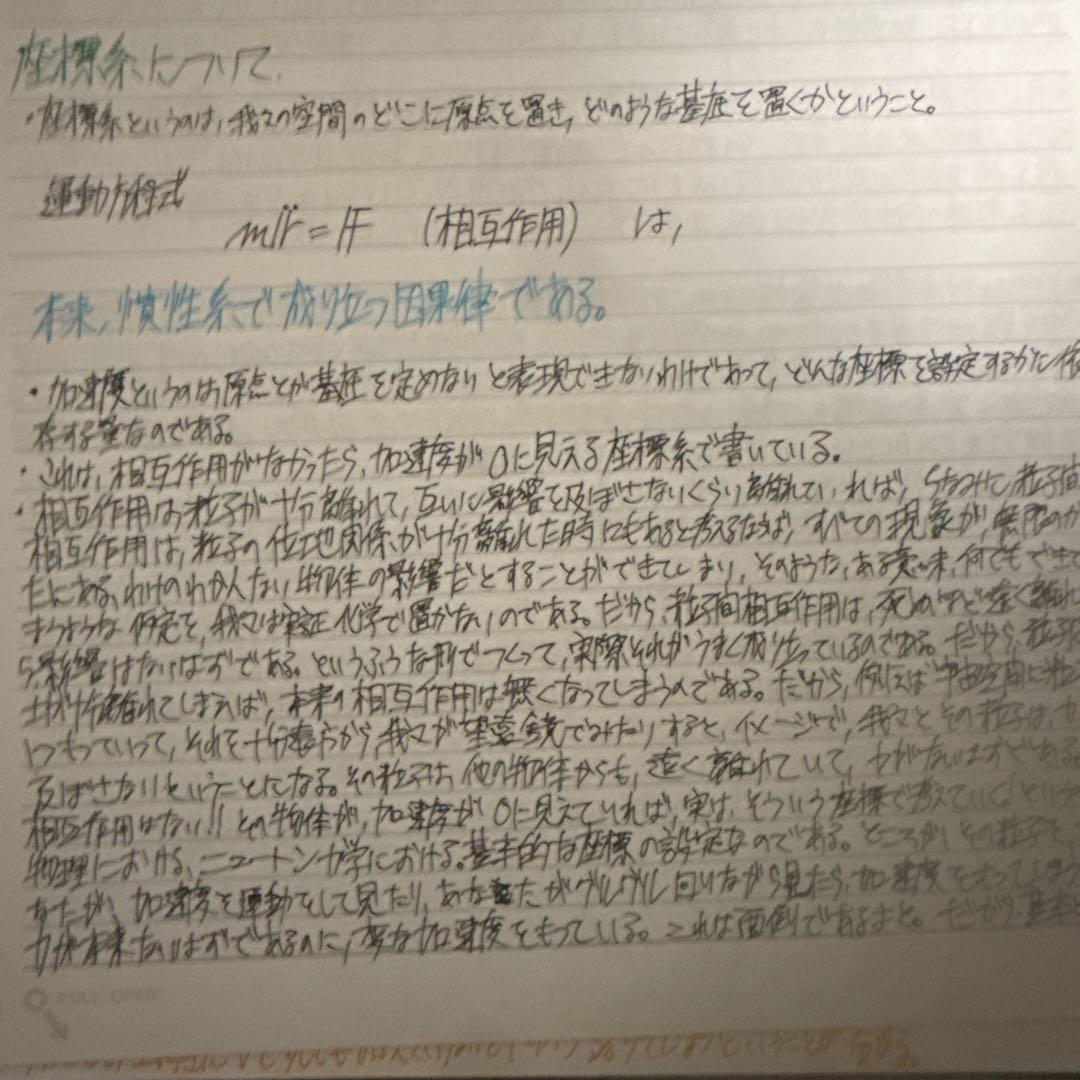 座標系について.
・座標系というのは、我々の空間のどこに原点を置き、どのような基底を置くかということ。
運動方程式
mr̈ = F (相互作用) は、
本来、慣性系で成り立つ因果律である。
・加速度というのは原点とか基底を定めないと表現できないわけであって、どんな座標を設定するかに依
存する量なのである。
・これは、相互作用がなかったら、加速度が0に見える座標系で書いている。
・相互作用は粒子が十分離れて、互いに影響を及ぼさないくらい離れていれば、ちなみに、粒子間
相互作用は、粒子の位置関係が十分離れた時にもあると考えるならば、すべての現象が、無限のか
なたにある、わけのわかんない物体の影響だとすることができてしまい、そのような、ある意味、何でもできて
しまうような仮定を、我々は実証化学で置かないのである。だから、粒子間相互作用は、死ぬほど遠く離れ
ら影響はないはずである。というふうな形でつくって、実際それがうまく成り立っているのである。だから、粒子
が十分離れてしまえば、本来の相互作用は無くなってしまうのである。だから、例えば宇宙空間に粒
もっていって、それを十分遠方から、我々が望遠鏡でみたりすると、イメージで、我々とその粒子は、力
及ばさないということになる。その粒子は、他の物体からも、遠く離れていて、力がないはずである
相互作用はない!! その物体が、加速度が0に見えていれば、実は、そういう座標で考えていくという
物理における、ニュートン力学における。基本的な座標の設定なのである。ところが、その粒子を、
なたが、加速度を運動をして見たり、あなたがグルグル回りながら見たら、加速度をもってしまう
力が本来ないはずであるのに、変な加速度をもっている。これは面倒であるまと。だから、基本
FULL OPEN